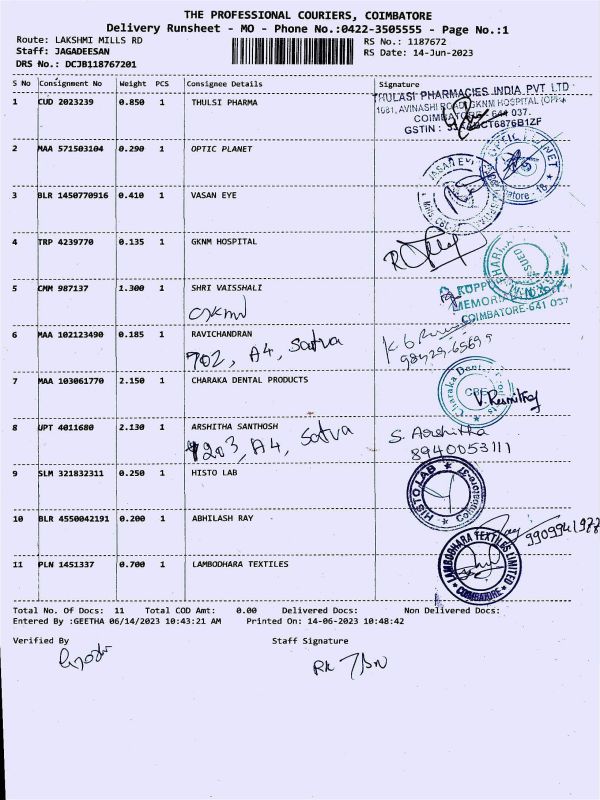 THE PROFESSIONAL COURIERS, COIMBATORE
Delivery Runsheet - MO - Phone No.:0422-3505555 - Page No.:1
Route: LAKSHMI MILLS RD RS No.: 1187672
Staff: JAGADEESAN RS Date: 14-Jun-2023
DRS No.: DCJB118767201
S No Consignment No Weight PCS Consignee Details Signature
1 CUD 2023239 0.850 1 THULSI PHARMA
THULASI PHARMACIES INDIA PVT LTD
1081, AVINASHI ROAD, GKNM HOSPITAL (OPP)
COIMBATORE - 641 037.
GSTIN :
2 MAA 571503104 0.290 1 OPTIC PLANET
OPTIC PLANET
3 BLR 1450770916 0.410 1 VASAN EYE
VASAN EYE
4 TRP 4239770 0.135 1 GKNM HOSPITAL
5 CMM 987137 1.300 1 SHRI VAISSHALI
MEMORIAL
COIMBATORE-641 037
6 MAA 102123490 0.185 1 RAVICHANDRAN
702, A4, Satva
7 MAA 103061770 2.150 1 CHARAKA DENTAL PRODUCTS
Charaka Dental Products
8 UPT 4011680 2.130 1 ARSHITHA SANTHOSH
1203, A4, Satva
S. Arshitha
8940053111
9 SLM 321832311 0.250 1 HISTO LAB
HISTO LAB
Coimbatore
10 BLR 4550042191 0.200 1 ABHILASH RAY
11 PLN 1451337 0.700 1 LAMBODHARA TEXTILES
LAMBODHARA TEXTILES LIMITED
COIMBATORE
Total No. Of Docs: 11 Total COD Amt: 0.00 Delivered Docs: Non Delivered Docs:
Entered By :GEETHA 06/14/2023 10:43:21 AM Printed On: 14-06-2023 10:48:42
Verified By Staff Signature